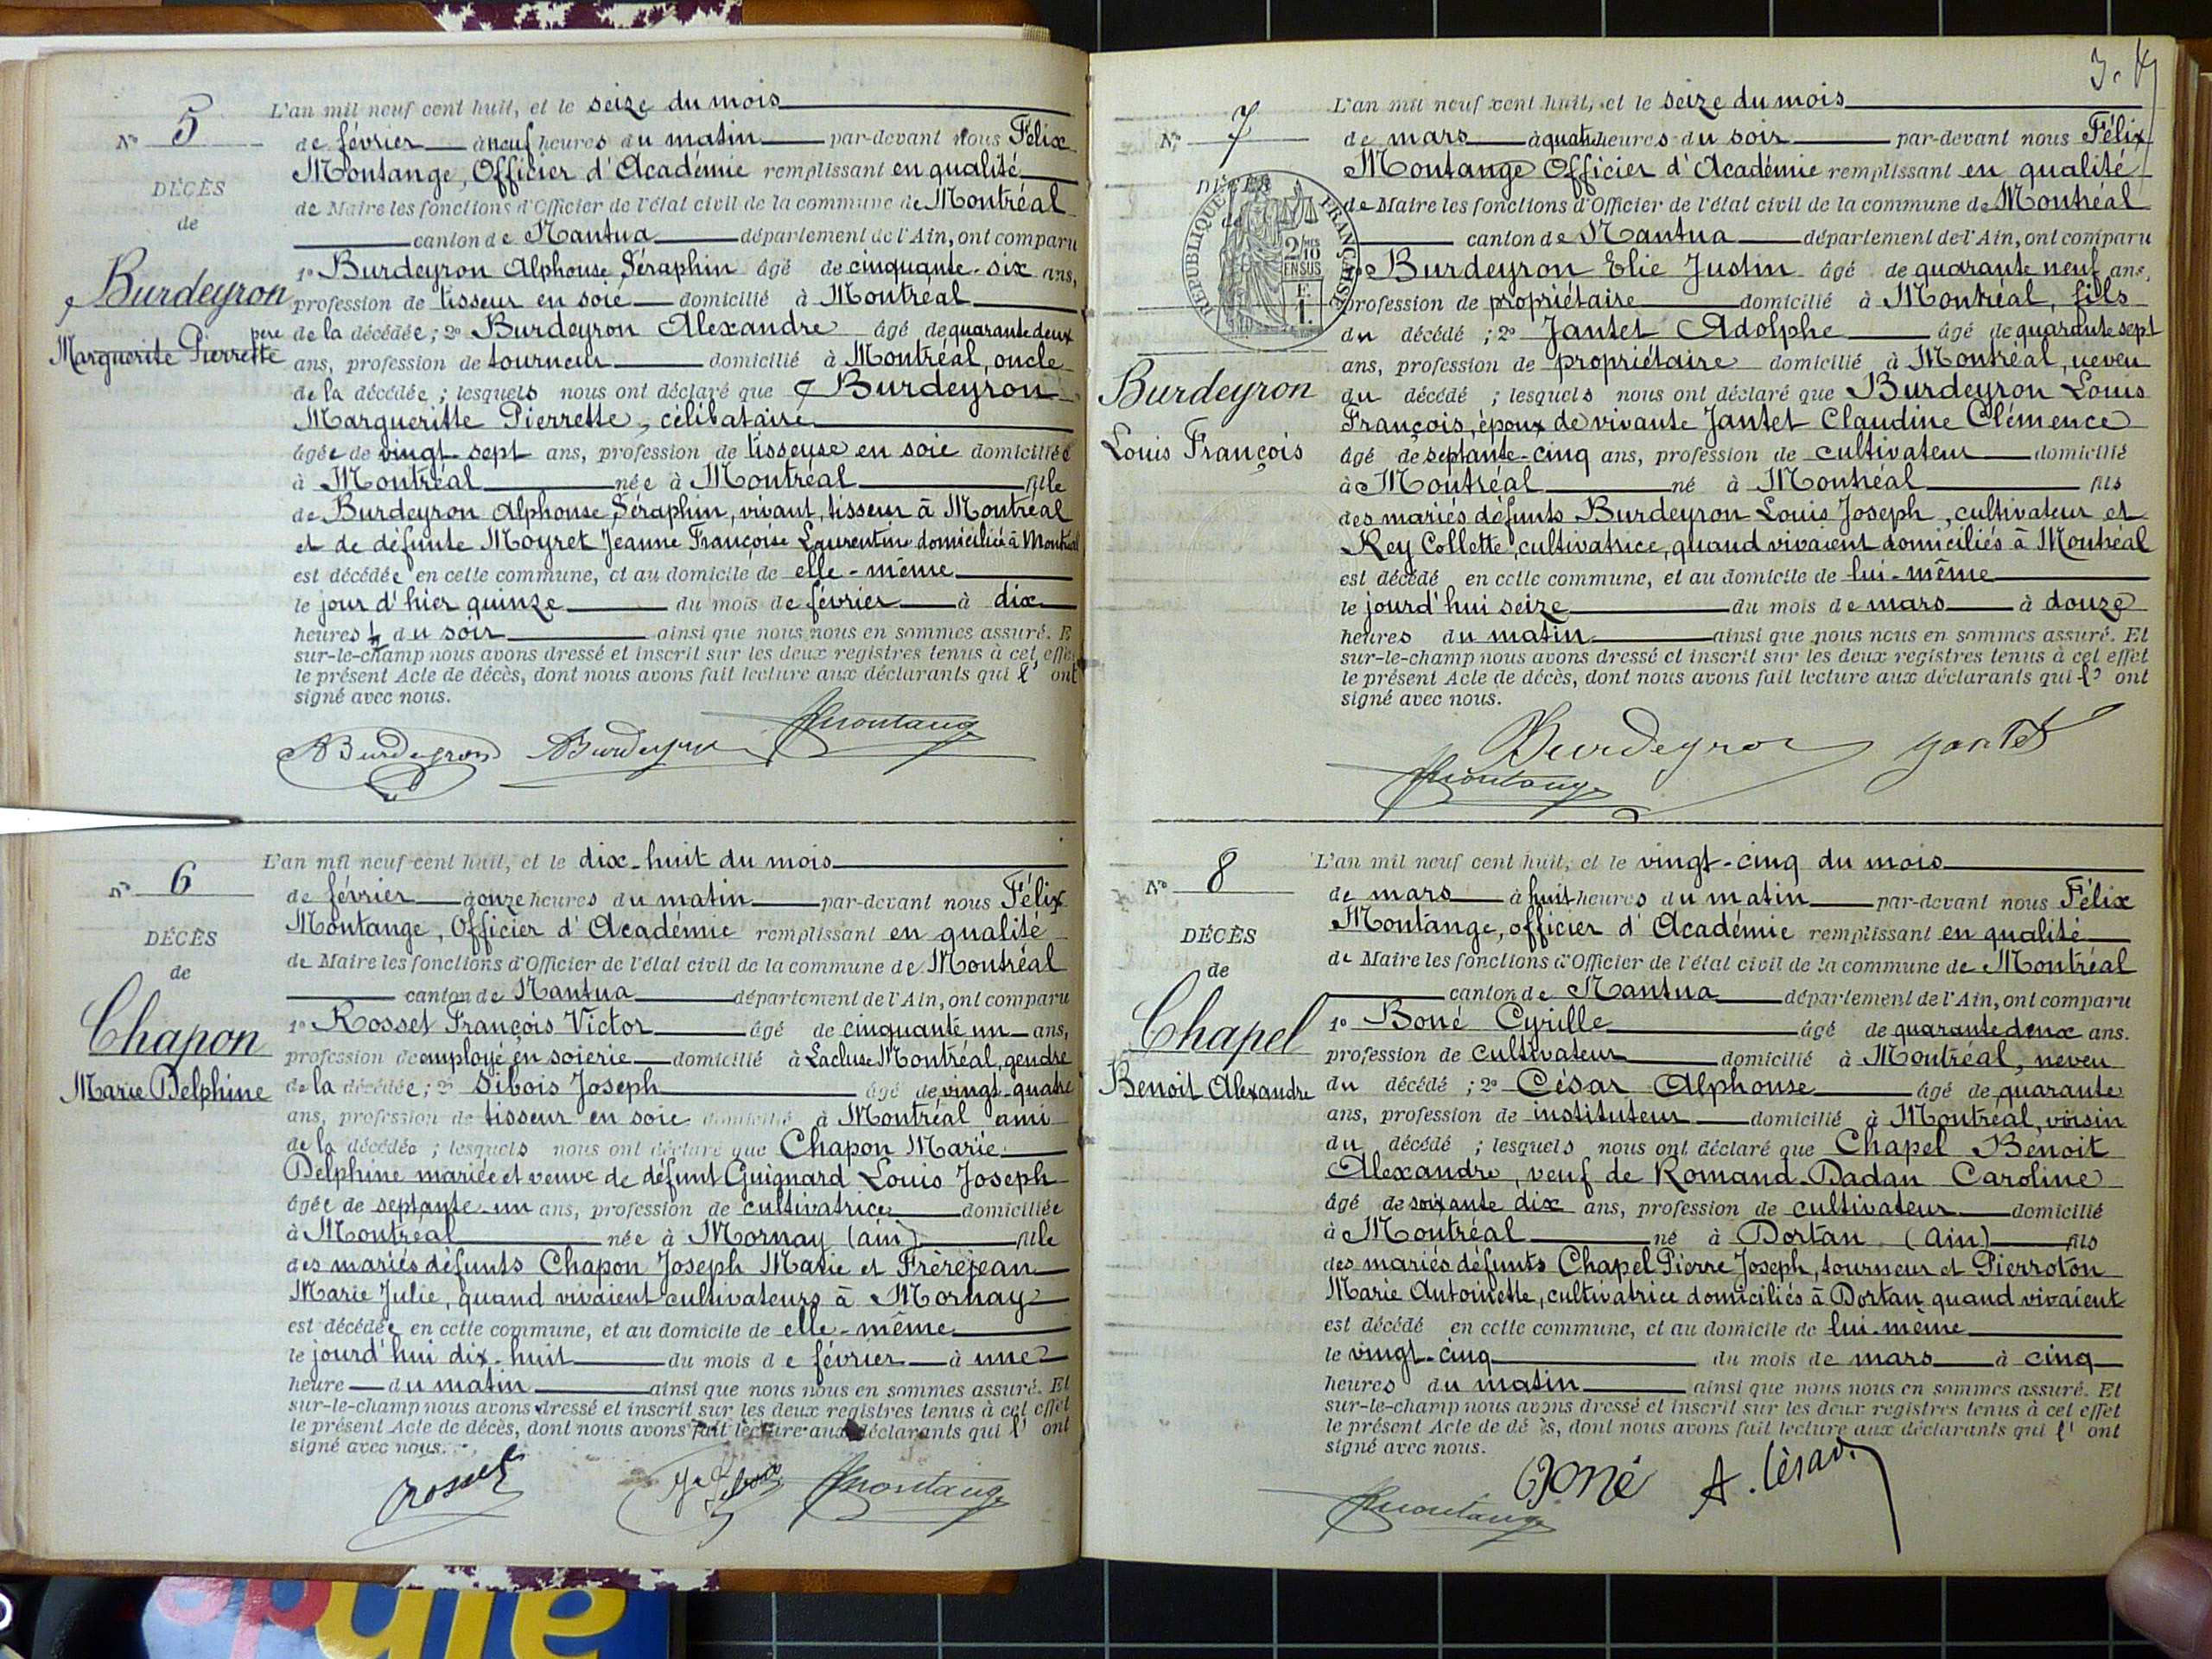 N° 5
DÉCÈS
de
Burdeyron
Marguerite Pierrette
L'an mil neuf cent huit, et le seize du mois
de février à neuf heures du matin par-devant nous Félix
Montange, Officier d'Académie remplissant en qualité
de Maire les fonctions d'Officier de l'état civil de la commune de Montréal
canton de Nantua département de l'Ain, ont comparu
1° Burdeyron Alphonse Séraphin âgé de cinquante-six ans,
profession de tisseur en soie domicilié à Montréal
père de la décédée ; 2° Burdeyron Alexandre âgé de quarante deux
ans, profession de tourneur domicilié à Montréal, oncle
de la décédée ; lesquels nous ont déclaré que Burdeyron
Margueritte Pierrette, célibataire
âgée de vingt-sept ans, profession de tisseuse en soie domiciliée
à Montréal née à Montréal fille
de Burdeyron Alphonse Séraphin, vivant, tisseur à Montréal
et de défunte Moyret Jeanne Françoise Laurentine domiciliée à Montréal
est décédée en cette commune, et au domicile de elle-même
le jour d'hier quinze du mois de février à dix
heures ½ du soir ainsi que nous nous en sommes assuré. E
sur-le-champ nous avons dressé et inscrit sur les deux registres tenus à cet effe
le présent Acte de décès, dont nous avons fait lecture aux déclarants qui l' ont
signé avec nous.
ABurdeyron ABurdeyron Montange
N° 6
DÉCÈS
de
Chapon
Marie Delphine
L'an mil neuf cent huit, et le dix-huit du mois
de février à onze heures du matin par-devant nous Félix
Montange, Officier d'Académie remplissant en qualité
de Maire les fonctions d'Officier de l'état civil de la commune de Montréal
canton de Nantua département de l'Ain, ont comparu
1° Rosset François Victor âgé de cinquante un ans,
profession de employé en soierie domicilié à Lacluse Montréal, gendre
de la décédée ; 2° Sibois Joseph âgé de vingt-quatre
ans, profession de tisseur en soie domicilié à Montréal ami
de la décédée ; lesquels nous ont déclaré que Chapon Marie
Delphine mariée et veuve de défunt Guignard Louis Joseph
âgée de septante-un ans, profession de cultivatrice domiciliée
à Montréal née à Mornay (ain) fille
des mariés défunts Chapon Joseph Marie et Frèrejean
Marie Julie, quand vivaient cultivateurs à Mornay
est décédée en cette commune, et au domicile de elle-même
le jourd'hui dix-huit du mois de février à une
heure du matin ainsi que nous nous en sommes assuré. Et
sur-le-champ nous avons dressé et inscrit sur les deux registres tenus à cet effet
le présent Acte de décès, dont nous avons fait lecture aux déclarants qui l' ont
signé avec nous.
Rosset Montange
3.
N° 7
DÉCÈS
de
RÉPUBLIQUE FRANÇAISE
2/10 EN SUS
Burdeyron
Louis François
L'an mil neuf cent huit, et le seize du mois
de mars à quatre heures du soir par-devant nous Félix
Montange Officier d'Académie remplissant en qualité
de Maire les fonctions d'Officier de l'état civil de la commune de Montréal
canton de Nantua département de l'Ain, ont comparu
1° Burdeyron Elie Justin âgé de quarante neuf ans,
profession de propriétaire domicilié à Montréal, fils
du décédé ; 2° Jantet Adolphe âgé de quarante sept
ans, profession de propriétaire domicilié à Montréal, neveu
du décédé ; lesquels nous ont déclaré que Burdeyron Louis
François, époux de vivante Jantet Claudine Clémence
âgé de septante-cinq ans, profession de cultivateur domicilié
à Montréal né à Montréal fils
des mariés défunts Burdeyron Louis Joseph, cultivateur et
Rey Collette, cultivatrice, quand vivaient domiciliés à Montréal
est décédé en cette commune, et au domicile de lui-même
le jourd'hui seize du mois de mars à douze
heures du matin ainsi que nous nous en sommes assuré. Et
sur-le-champ nous avons dressé et inscrit sur les deux registres tenus à cet effet
le présent Acte de décès, dont nous avons fait lecture aux déclarants qui l' ont
signé avec nous.
Burdeyron Jantet
Montange
N° 8
DÉCÈS
de
Chapel
Benoit Alexandre
L'an mil neuf cent huit, et le vingt-cinq du mois
de mars à huit heures du matin par-devant nous Félix
Montange, officier d'Académie remplissant en qualité
de Maire les fonctions d'Officier de l'état civil de la commune de Montréal
canton de Nantua département de l'Ain, ont comparu
1° Boné Cyrille âgé de quarante deux ans.
profession de cultivateur domicilié à Montréal, neveu
du décédé ; 2° César Alphonse âgé de quarante
ans, profession de instituteur domicilié à Montréal, voisin
du décédé ; lesquels nous ont déclaré que Chapel Benoit
Alexandre, veuf de Romand-Dadan Caroline
âgé de soixante dix ans, profession de cultivateur domicilié
à Montréal né à Dortan (Ain) fils
des mariés défunts Chapel Pierre Joseph, tourneur et Pierroton
Marie Antoinette, cultivatrice domiciliés à Dortan quand vivaient
est décédé en cette commune, et au domicile de lui-même
le vingt-cinq du mois de mars à cinq
heures du matin ainsi que nous nous en sommes assuré. Et
sur-le-champ nous avons dressé et inscrit sur les deux registres tenus à cet effet
le présent Acte de dé ès, dont nous avons fait lecture aux déclarants qui l' ont
signé avec nous.
Boné A. César
Montange